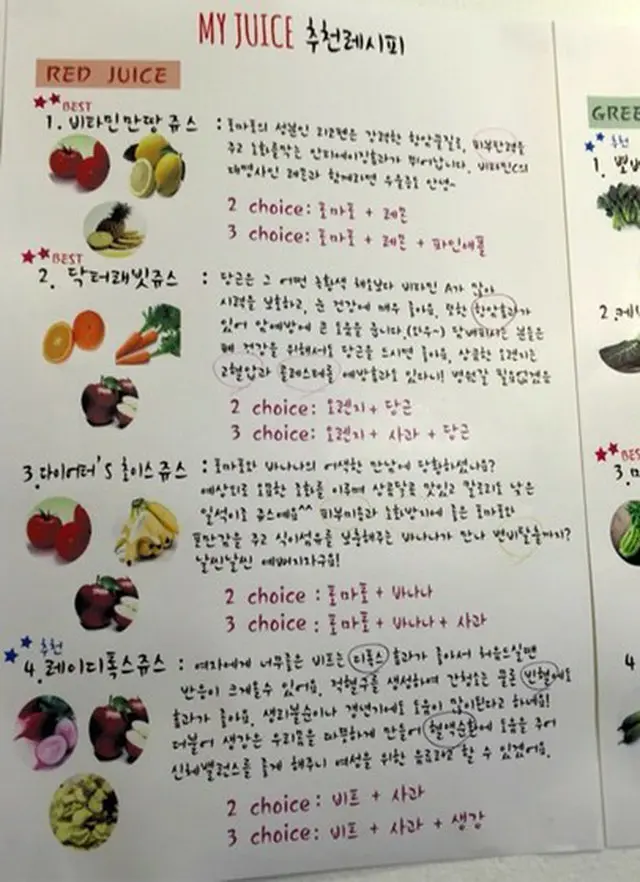 MY JUICE 추천레시피
RED JUICE
BEST
1. 비타민만땅쥬스 : 토마토의 성분인 리코펜은 강력한 항암물질로, 피부탄력을
주고 노화를막는 안티에이징효과가 뛰어납니다. 비타민C의
대명사인 레몬과 함께라면 우울증도 안녕~
2 choice: 토마토 + 레몬
3 choice: 토마토 + 레몬 + 파인애플
BEST
2. 닥터래빗쥬스 : 당근은 그 어떤 녹황색 채소보다 비타민 A가 많아
시력을 보호하고, 눈 건강에 매우 좋아요. 또한 항암효과가
있어 암예방에 큰 도움을 줍니다.(와우~) 담배피시는 분들은
폐 건강을 위해서도 당근을 드시면 좋아요. 상큼한 오렌지는
고혈압과 콜레스테롤 예방효과도 있다니! 병원갈 필요없겠음
2 choice: 오렌지 + 당근
3 choice: 오렌지 + 사과 + 당근
3.다이어터's 초이스쥬스 : 토마토와 바나나의 어색한 만남에 당황하셨나요?
예상외로 오묘한 조화를 이루며 상콤달콤 맛있고 칼로리도 낮은
일석이조 쥬스예요^^ 피부미용과 노화방지에 좋은 토마토와
포만감을 주고 식이섬유를 보충해주는 바나나가 만나 변비탈출까지?
날씬날씬 예뻐지자구요!
2 choice : 토마토 + 바나나
3 choice : 토마토 + 바나나 + 사과
추천
4.레이디톡스쥬스 : 여자에게 너무좋은 비트는 디톡스 효과가 좋아서 처음드실땐
반응이 크게올수 있어요. 적혈구를 생성하여 간청소는 물론 빈혈에도
효과가 좋아요. 생리불순이나 갱년기에도 도움이 많이된다고 하네요!
더불어 생강은 우리몸을 따뜻하게 만들어 혈액순환에 도움을 주어
신체밸런스를 좋게 해주니 여성을 위한 음료라고 할 수 있겠어요.
2 choice: 비트 + 사과
3 choice: 비트 + 사과 + 생강
GREE
추천
1.
2.케
BES
3.
4